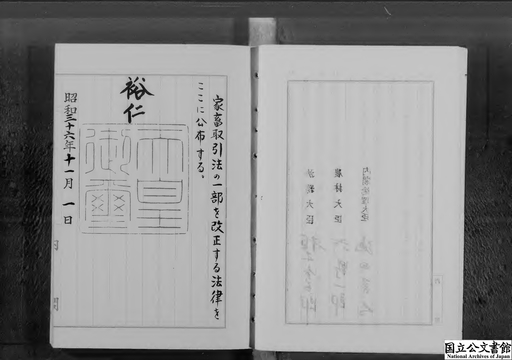 家畜取引法の一部を改正する法律を
ここに公布する。
裕仁
天皇
御璽
昭和三十六年十一月一日
内閣総理大臣
農林大臣
国立公文書館
National Archives of Japan